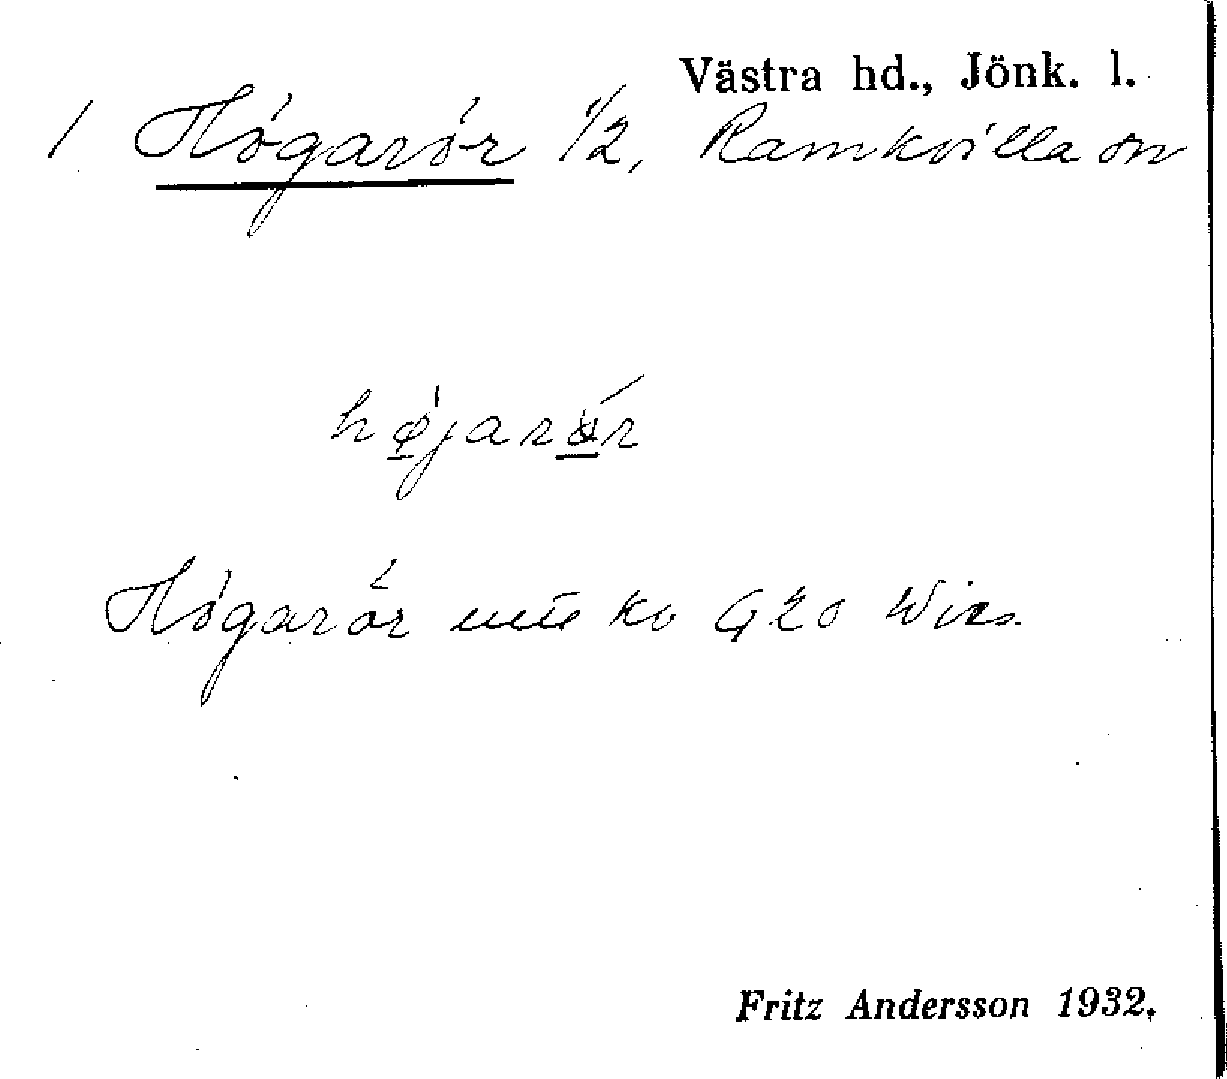 Västra hd., Jönk. l.
1 Högarör 1/2, Ramkvilla sn
højarör
Högarör ko G 20
Fritz Andersson 1932.